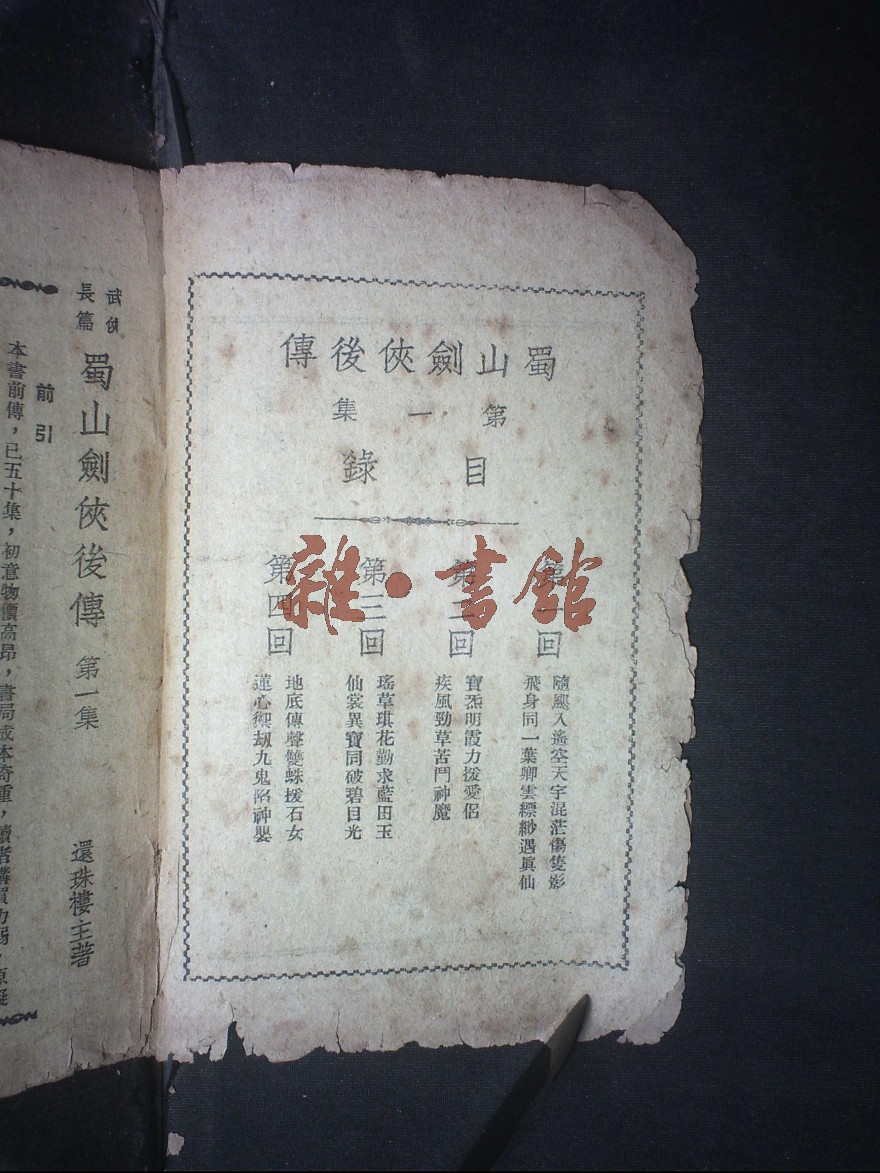 蜀山劍俠後傳
第一集
目錄
第一回
隨颷入遙空天宇混茫傷隻影
飛身同一葉卿雲縹緲遇眞仙
第二回
寶炁明霞力援愛侶
疾風勁草苦鬥神魔
第三回
瑤草琪花勤求藍田玉
仙裳異寶同破碧目光
第四回
地底傳聲雙蛛援石女
蓮心禦劫九鬼陷神嬰
雜·書館
武俠
長篇
蜀山劍俠後傳 第一集
還珠樓主著
前引
本書前傳，已五十集，初意物價高昂，書局成本奇重，讀者購買力弱，原擬